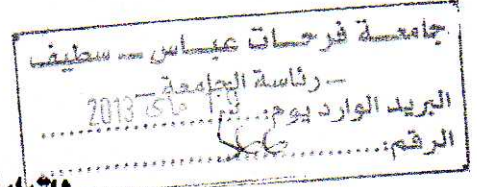 جامعة فرحات عباس - سطيف
- رئاسة الجامعة -
البريد الوارد يوم: ماي 2013
الرقم: